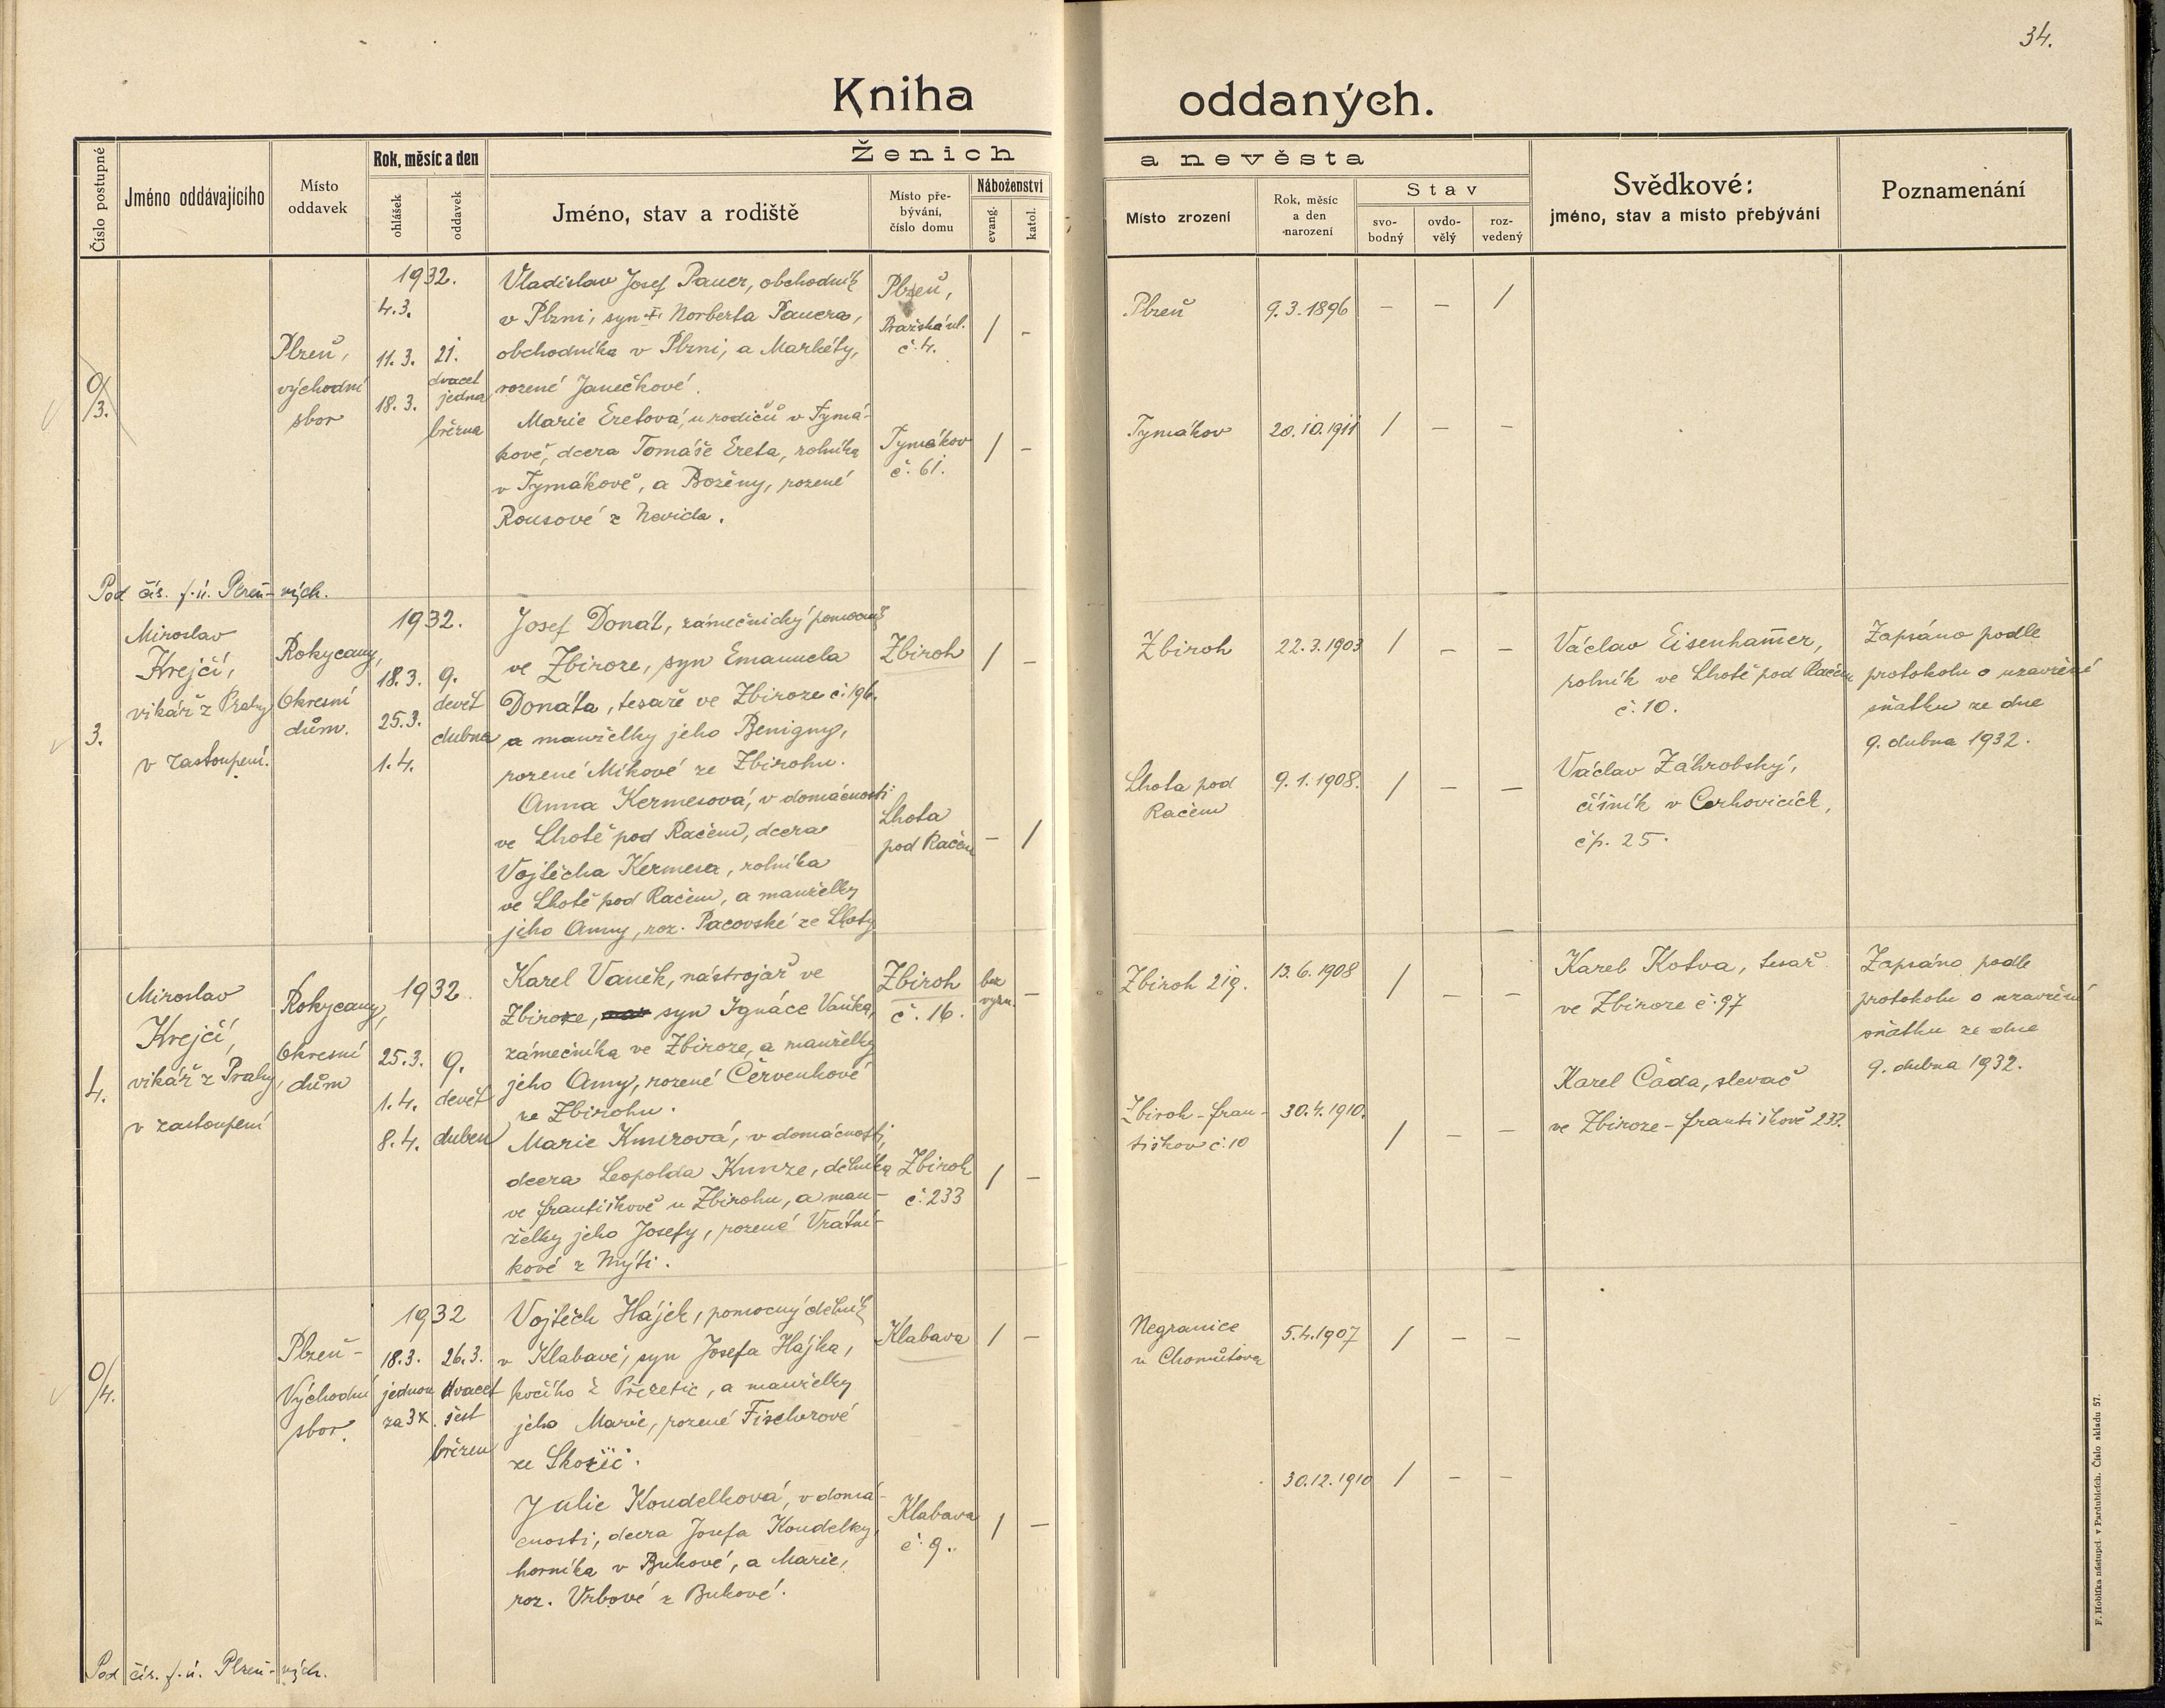 34.
Kniha oddaných.
Číslo postupné
Jméno oddávajícího
Místo oddavek
Rok, měsíc a den
ohlášek
oddavek
Ženich a nevěsta
Jméno, stav a rodiště
Místo pře-
bývání,
číslo domu
Náboženství
evang.
katol.
Místo zrození
Rok, měsíc
a den
narození
Stav
svo-
bodný
ovdo-
vělý
roz-
vedený
Svědkové:
jméno, stav a místo přebývání
Poznamenání
0/3.
Plzeň,
východní
sbor
1932.
4.3.
11.3.
18.3.
21.
dvacet
jedna
března
Vladislav Josef Pauer, obchodník
v Plzni, syn † Norberta Pauera,
obchodníka v Plzni, a Markéty,
rozené Janečkové.
Plzeň,
Pražská ul.
č. 4.
/ -
Plzeň
9.3.1896
- - /
Marie Eretová, u rodičů v Tymá-
kově, dcera Tomáše Ereta, rolníka
v Tymákově, a Boženy, rozené
Rousové z Nevida.
Tymákov
č. 61.
/ -
Tymákov
20.10.1911
/ - -
Pod čís. ř. ú. Plzeň-vých.
3.
Miroslav
Krejčí,
vikář z Prahy
v zastoupení.
Rokycany,
Okresní
dům.
1932.
18.3.
25.3.
1.4.
9.
devět
dubna
Josef Donát, zámečnický pomocník
ve Zbiroze, syn Emanuela
Donáta, tesaře ve Zbiroze č. 196.
a manželky jeho Benigny,
rozené Míkové ze Zbirohu.
Zbiroh
/ -
Zbiroh
22.3.1903
/ - -
Anna Kermesová, v domácnosti
ve Lhotě pod Račem, dcera
Vojtěcha Kermesa, rolníka
ve Lhotě pod Račem, a manželky
jeho Anny, roz. Pacovské ze Lhoty
Lhota
pod Račem
- /
Lhota pod
Račem
9.1.1908.
/ - -
Václav Eisenham̅er,
rolník ve Lhotě pod Račem
č. 10.
Václav Záhrobský,
číšník v Cerhovicích,
čp. 25.
Zapsáno podle
protokolu o uzavření
sňatku ze dne
9. dubna 1932.
4.
Miroslav
Krejčí,
vikář z Prahy,
v zastoupení
Rokycany,
Okresní
dům
1932.
25.3.
1.4.
8.4.
9.
devět
duben
Karel Vaněk, nástrojař ve
Zbiroze, syn Ignáce Vaňka,
zámečníka ve Zbiroze, a manželky
jeho Anny, rozené Červenkové
ze Zbirohu.
Zbiroh
č. 16.
bez
vyzn.
-
Zbiroh 219.
13.6.1908
/ - -
Marie Kunzová, v domácnosti,
dcera Leopolda Kunze, dělníka
ve Františkově u Zbirohu, a man-
želky jeho Josefy, rozené Vrátní-
kové z Mýti.
Zbiroh
č. 233
/ -
Zbiroh-Fran-
tiškov č. 10
30.4.1910.
/ - -
Karel Kotva, tesař
ve Zbiroze č. 97
Karel Čada, slevač
ve Zbiroze-Františkově 233.
Zapsáno podle
protokolu o uzavření
sňatku ze dne
9. dubna 1932.
0/4.
Plzeň-
Východní
sbor.
1932
18.3.
jednou
za 3x
26.3.
dvacet
šest
březen
Vojtěch Hájek, pomocný dělník
v Klabavě, syn Josefa Hájka,
kočího z Přezetic, a manželky
jeho Marie, rozené Fischerové
ze Skořic.
Klabava
/ -
Negranice
u Chomutova
5.4.1907
/ - -
Julie Koudelková, v domá-
cnosti, dcera Josefa Koudelky,
horníka v Bukové, a Marie,
roz. Vrbové z Bukové.
Klabava
č. 9.
/ -
30.12.1910
/ - -
Pod čís. ř. ú. Plzeň-vých.
F. Hoblíka nástupci. v Pardubicích. Číslo skladu 57.